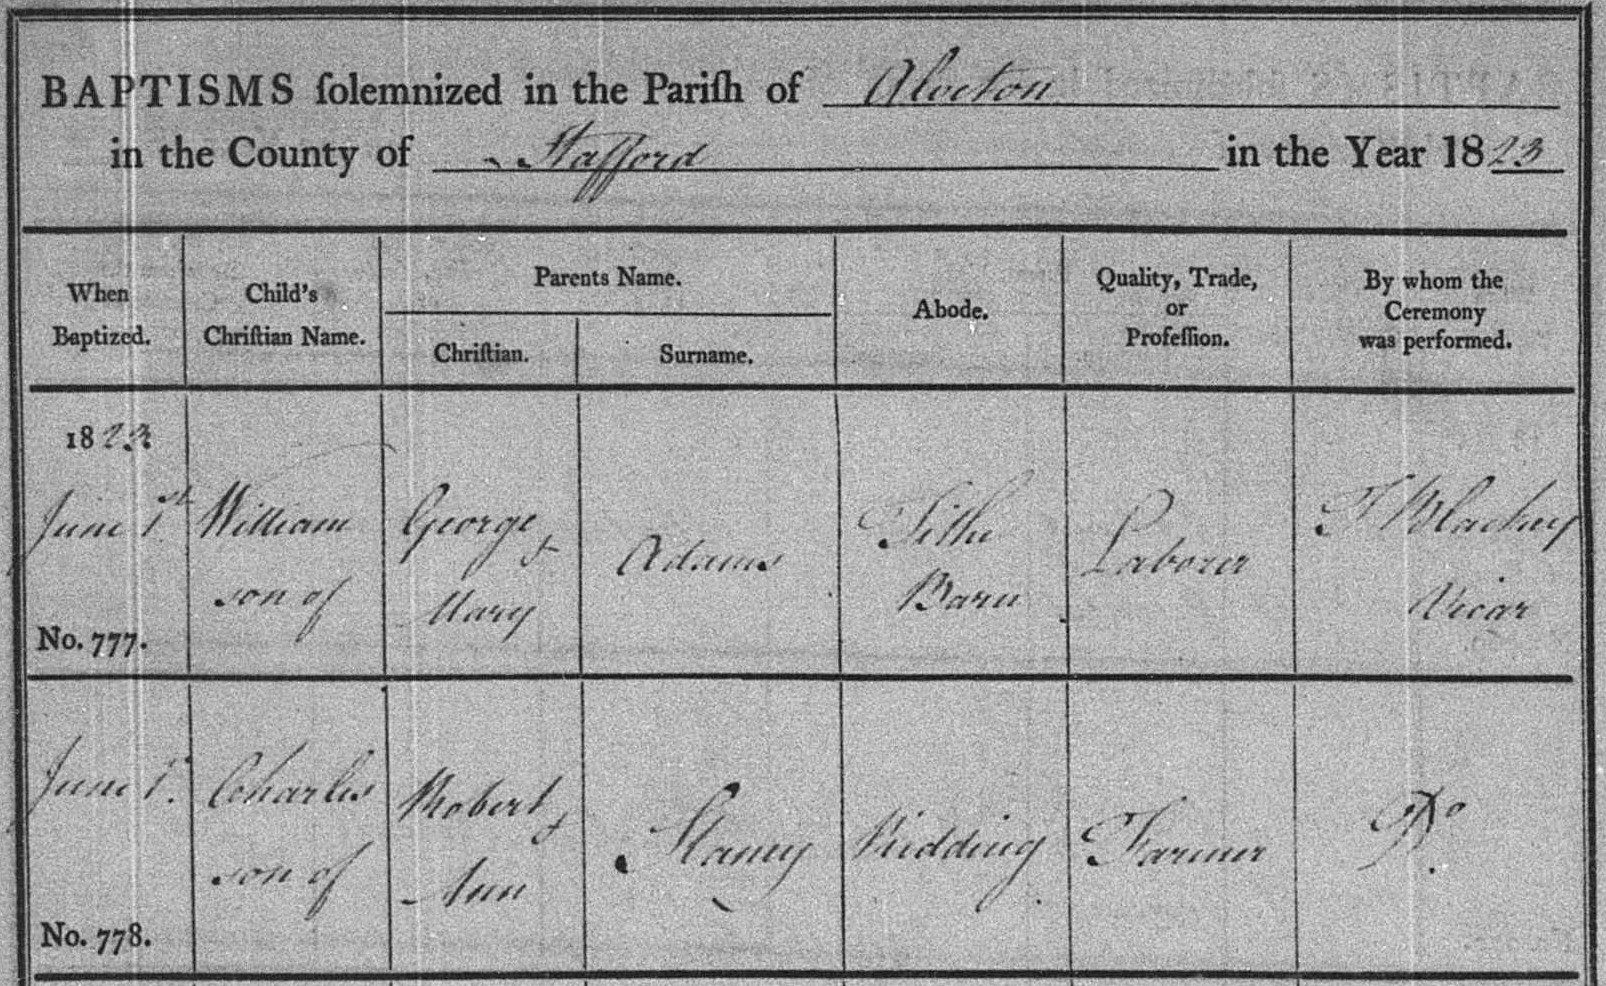 BAPTISMS ſolemnized in the Pariſh of Alveton
in the County of Stafford in the Year 1823
When Baptized.
Child's Chriſtian Name.
Parents Name.
Chriſtian.
Surname.
Abode.
Quality, Trade, or Profeſſion.
By whom the Ceremony was performed.
1823
June 1st
No. 777.
William
son of
George &
Mary
Adams
Tithe
Barn
Laborer
T Blackey
Vicar
June 1st.
No. 778.
Charles
son of
Robert &
Ann
Slaney
Ridding
Farmer
Do.